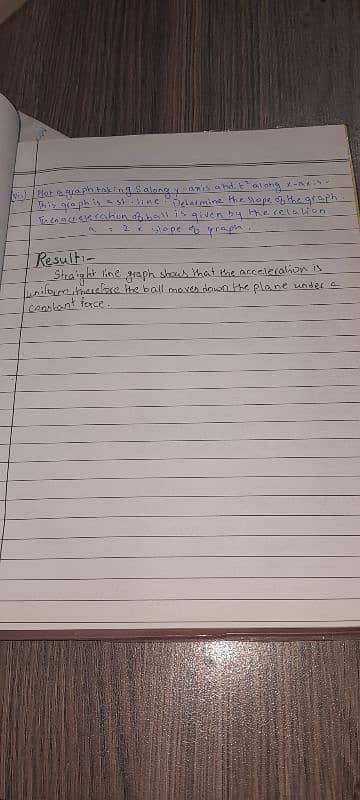 vii) Plot a graph taking S along y-axis and t² along x-axis.
This graph is a st. line. Determine the slope of the graph.
Then acceleration of ball is given by the relation
a = 2 x slope of graph.
Result:-
Straight line graph shows that the acceleration is
uniform, therefore the ball moves down the plane under a
constant force.